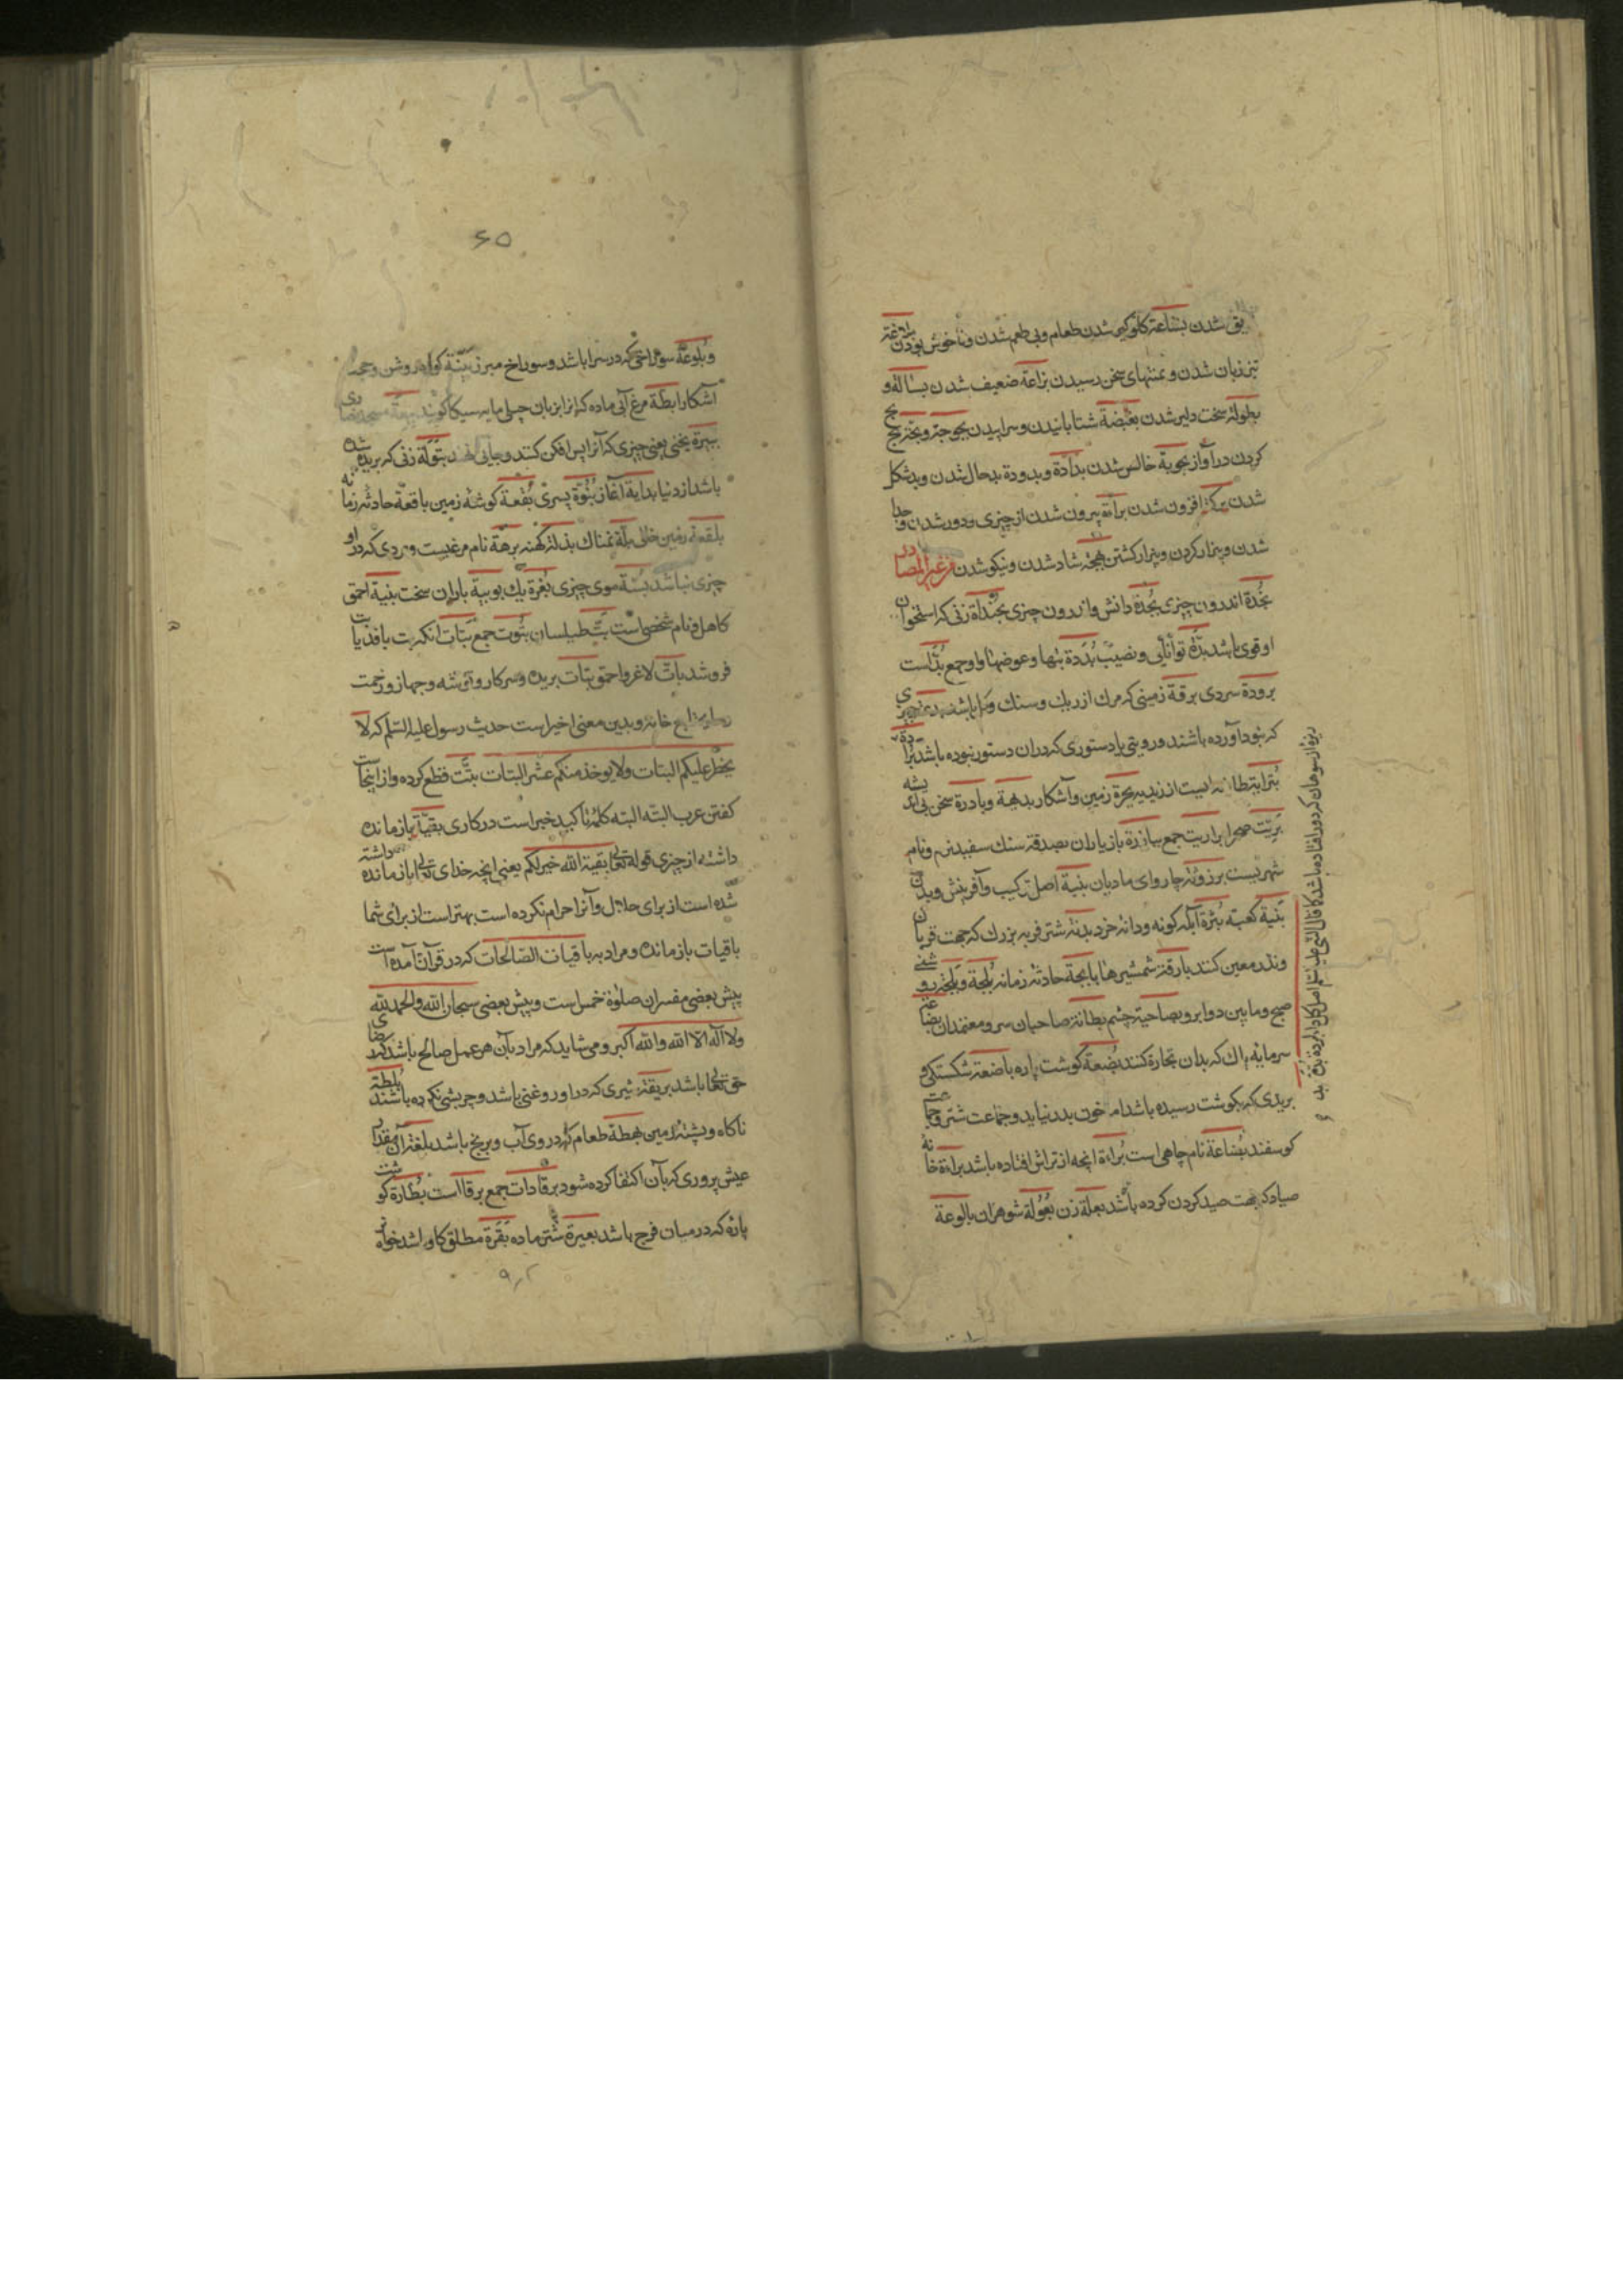 یق شدن بشاعة کلوگیر شدن طعام و بی طعم شدن و ناخوش بودن بلاغة
تیز زبان شدن و بمنتهای سخن رسیدن بزاعة ضعیف شدن بسالة و
بطولة سخت دلیر شدن بغضة شتابانیدن و سراییدن بحوحة و بحّة بح
کردن در آواز بحوبة خالص شدن بداءة و بدودة بدحال شدن و بدشکل
شدن برکة افزون شدن براءة بیرون شدن از چیزی و دور شدن و جدا
شدن و بیزار کردن و بیزار کشتن بهجة شاد شدن و نیکو شدن من غیر المصادر
بجدة اندرون چیزی بجدة دانش و اندرون چیزی بجداة زنی که استخوان
او قوی باشد بدّة توانایی و نصیب بددة بتها و عوضها و او جمع بدّ است
برودة سردی برقة زمینی که مرک از ریك و سنك و کل باشد بدعة چیزی
که نو در آورده باشند و رویتی یا دستوری که در آن دستور نبوده باشد برادة
بحرة زمین و آشکار بدیهة و بادرة سخن بی اندیشه
بریّت صحرا براریت جمع بیازرة بازیاران بصدقة سنك سفید نرم و نام
شهریست برزونة چاروای مادیان بنیة اصل ترکیب و آفرینش و بدن
بنیة کعبه بثرة آبله کونه و دانهٔ خرد بدنة شتر فربه بزرك که جهت قربان
و نذر معین کنند بارقة شمشیرها بابجة حادثهٔ زمانه بلجة و بلجة روشنی
صبح و ما بین دو ابرو بصاحیة چشم بطانة صاحبان سر و معتمدان بضاعة
سرمایه مال که بدان تجارة کنند بضعة کوشت پاره باضعة شکستکی و
بریدی که بکوشت رسیده باشد اما خون بدر نیاید و جماعت شتر و جماعت
کوسفند بضاعة نام چاهی است براءة آنچه از تراش افتاده باشد براءة خانه
صیاد که جهت صید کردن کرده باشد بعلة زن بعولة شوهران بالوعة
ریزه از سوهان که دور افتاده باشد کما قال النبی علیه السلام اصل کل داء البردة بذرة
۶۵
و بلوعة سوراخی که در سرا باشد و سوراخ مبرز بیّنة کواه روشن و حجة
آشکارا بطّة مرغ آبی ماده که آنرا بزبان کویند بیعة مسجد نصاری
ببرة یخنی یعنی چیزی که آنرا پس افکن کنند و جایی بتولة زنی که بریده شده
باشد از دنیا بدایة آغاز بنوّة پسری بقعة کوشهٔ زمین باقعة حادثهٔ زمانه
بلقعة زمین خالی بلّة نمناك بذلة کهنه برهة نام مرغیست و ردی که در او
چیزی نباشد بسّة موی چیزی بغرة یك بوبیة باران سخت بنیة احمق
کاهل و نام شخصی است بتّ طیلسان بتوت جمع بتات آنکه بت بافد یا
فروشد باتّ لاغر و احمق بتات بریده و سر کار و توشه و جهاز و رخت
خانه و بدین معنی اخیر است حدیث رسول علیه السلم که لا
یحظر علیکم البتات ولا یوخذ منکم عشر البتات بتّت قطع کرده و از اینجاست
کفتن عرب البته البته کلمهٔ تأکید خبر است در کاری بقیّة باز مانده
داشته از چیزی قوله تعالی بقیة الله خیر لکم یعنی آنچه خدای تعالی باز مانده داشته
شده است از برای حلال و آنرا حرام نکرده است بهتر است از برای شما
باقیات باز مانده و مراد به باقیات الصالحات که در قرآن آمده است
پیش بعضی مفسران صلوة خمس است و پیش بعضی سبحان الله والحمد لله
ولا اله الا الله والله اکبر و می شاید که مراد بآن هر عمل صالح باشد که رضای
حق تعالی باشد بریقة شیری که در او روغنی باشد و چربشی نکرده باشند بلطة
ناکاه و پشتهٔ زمین بهطة طعام که در وی آب و برنج باشد بلغة آن مقدار
عیش پروری که بآن اکتفا کرده شود برقادات جمع برقا است بظارة کوشت
پاره که در میان فرج باشد بعیرة شتر ماده بقرة مطلق کاو باشد خواه